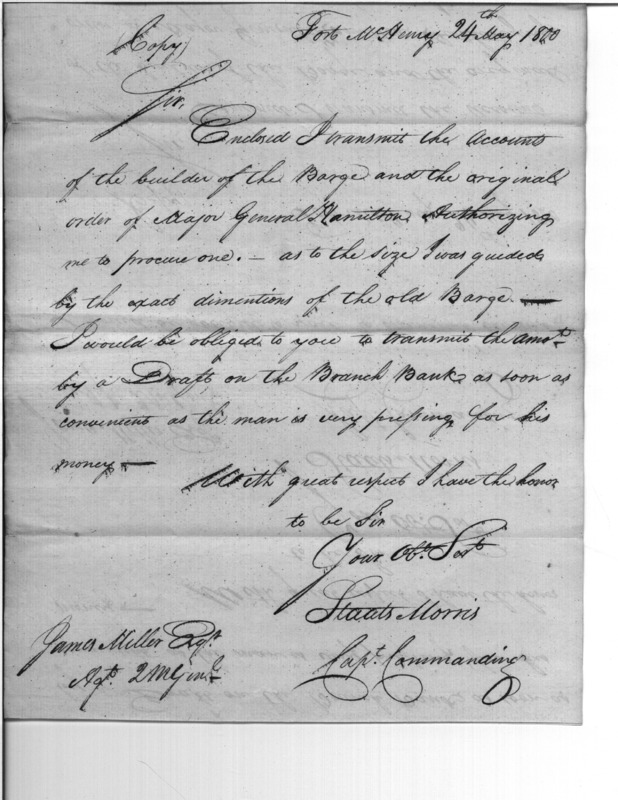 Fort McHenry 24th May 1800
Copy
Sir,
Enclosed I transmit the Accounts
of the builder of the Barge and the original
order of Major General Hamilton Authorizing
me to procure one. — as to the size I was guided
by the exact dimentions of the old Barge —
I would be obliged to you to transmit the amot.
by a Draft on the Branch Bank as soon as
convenient as the man is very pressing for his
money —
With great respect I have the honor
to be Sir
Your Obt. Sert.
Staats Morris
Capt. Commanding
James Miller Esqr.
Agt. QMGenl.